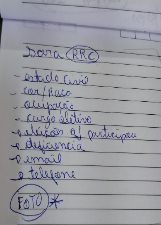 Para RRC
- estado civil
- cor/raça
- ocupação
- cargo eletivo
- eleições q/ participou
- deficiência
- email
- telefone
FOTO *